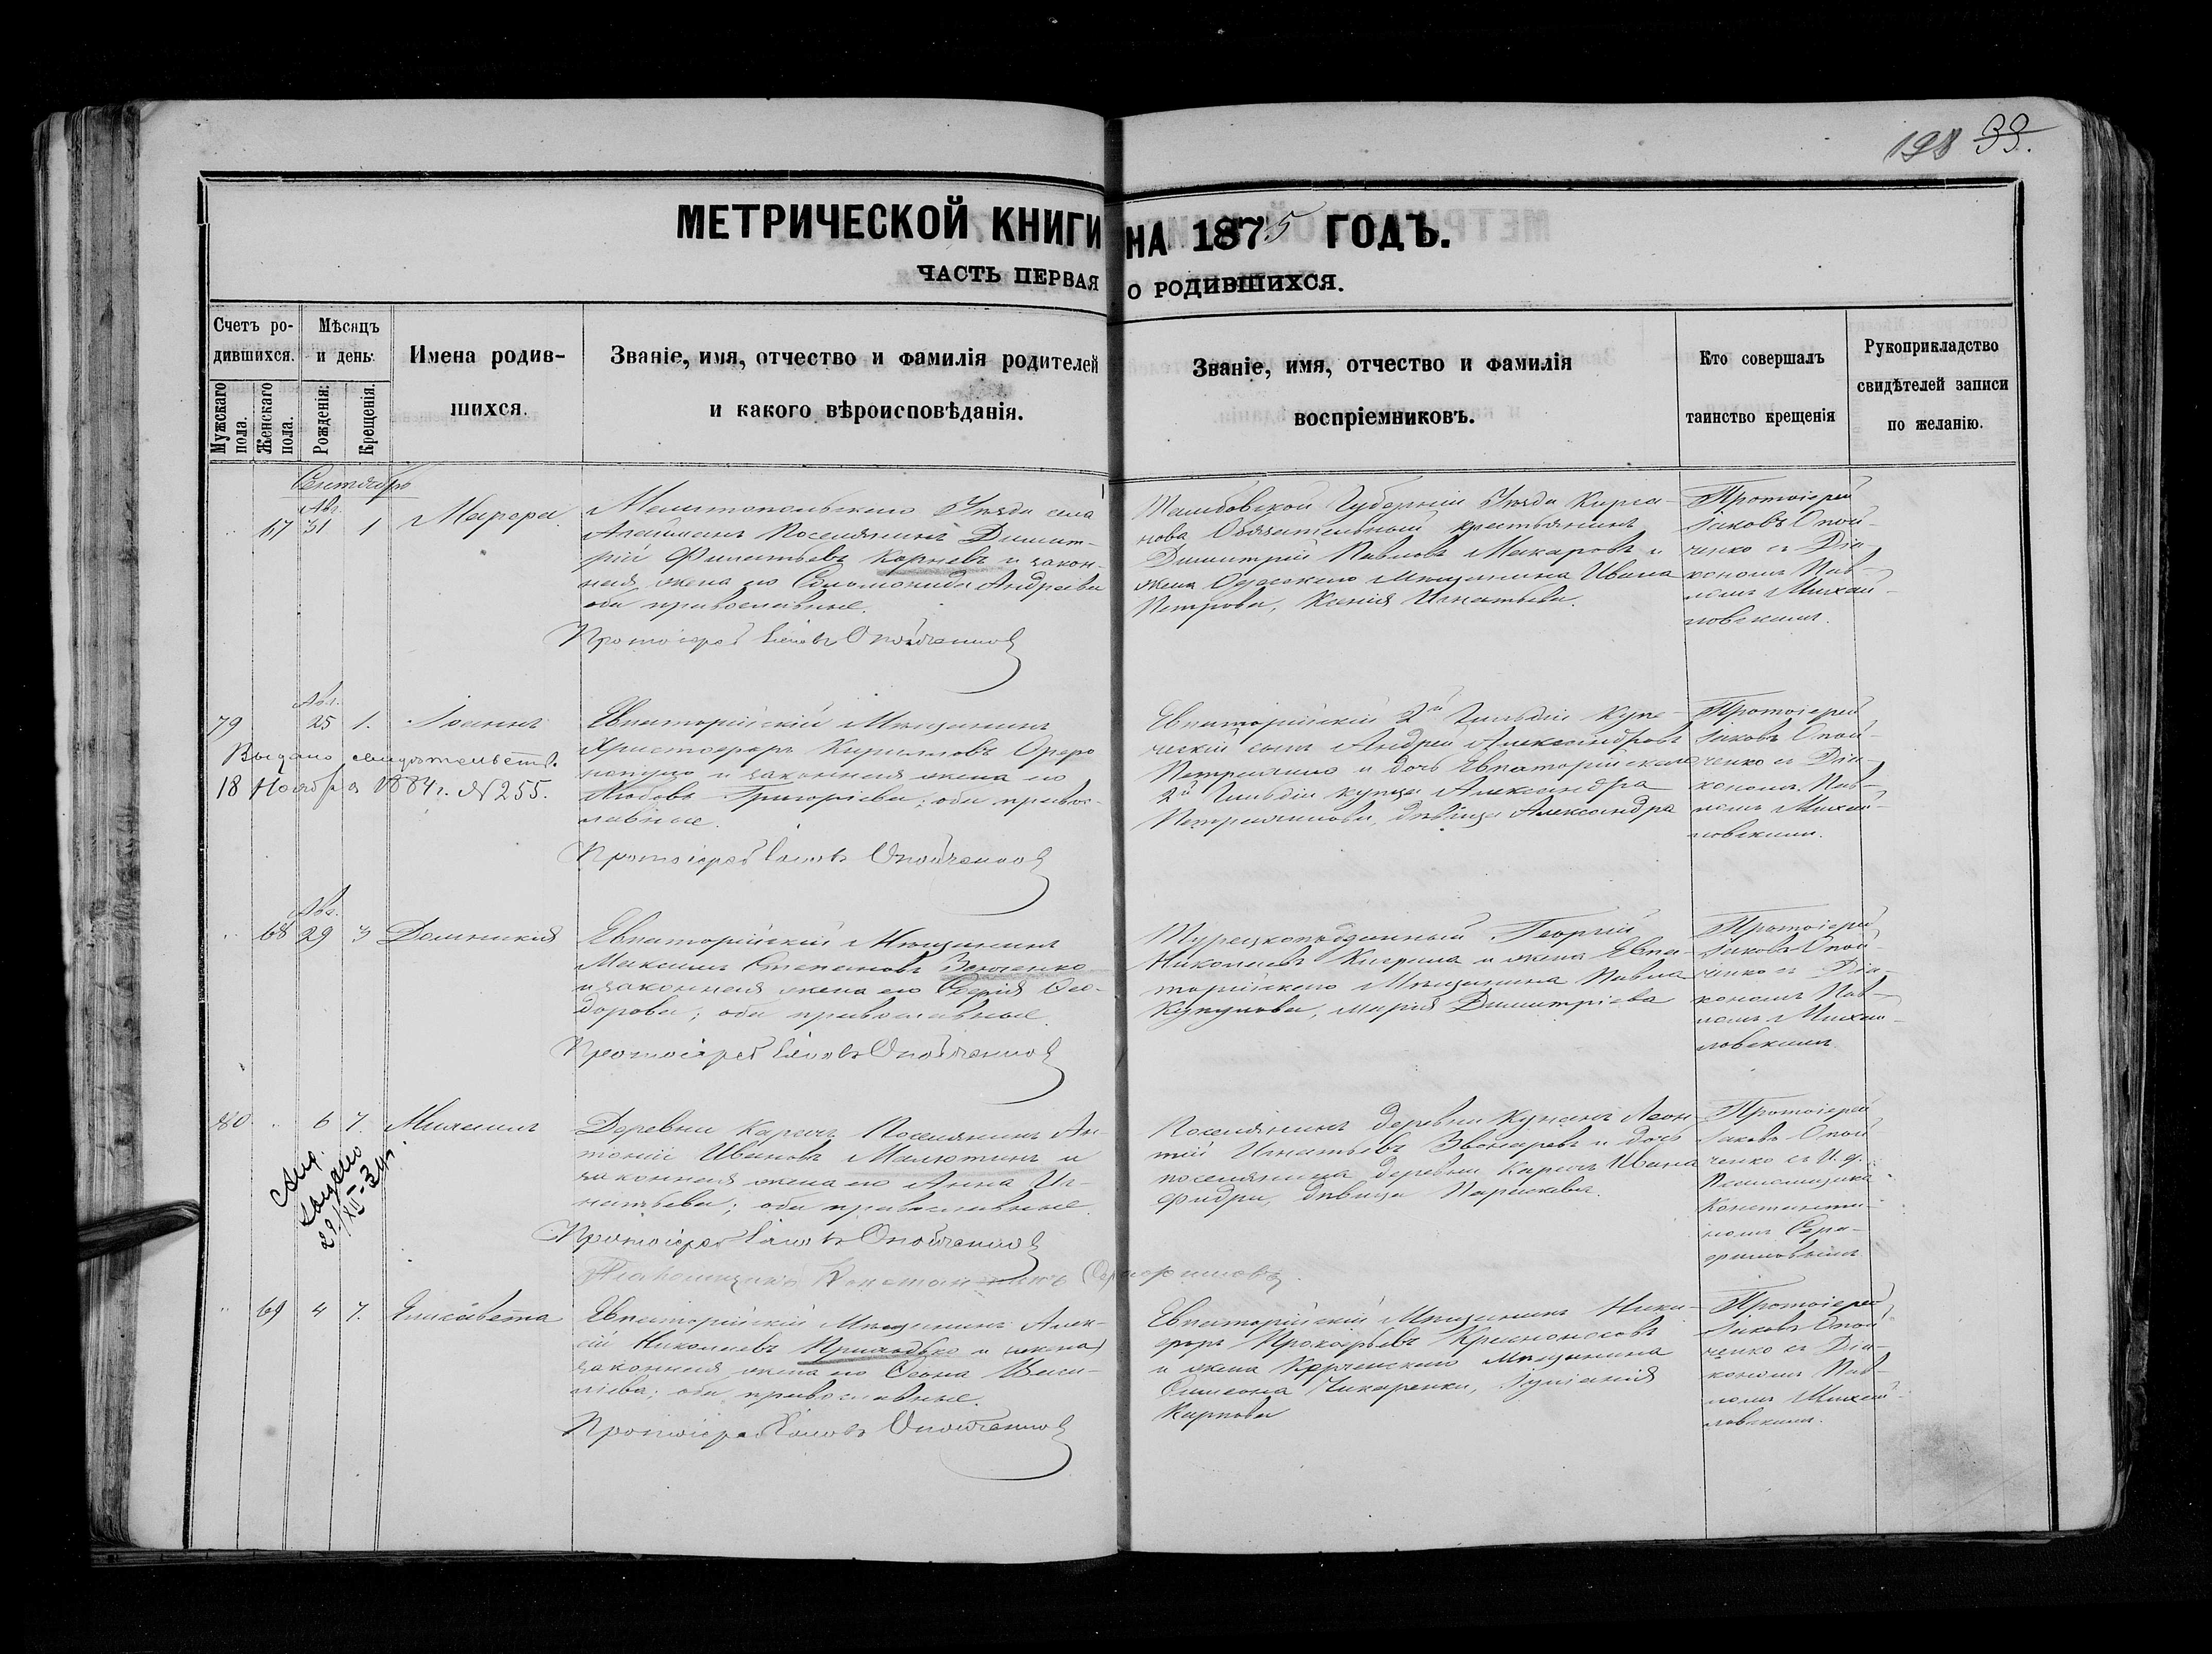 198 33.
МЕТРИЧЕСКОЙ КНИГИ НА 1875 ГОДЪ.
ЧАСТЬ ПЕРВАЯ О РОДИВШИХСЯ.
Счетъ ро-
дившихся.
Мужскаго пола.
Женскаго пола.
Мѣсяцъ
и день.
Рожденія.
Крещенія.
Имена родив-
шихся.
Званіе, имя, отчество и фамилія родителей
и какого вѣроисповѣданія.
Званіе, имя, отчество и фамилія
воспріемниковъ.
Кто совершалъ
таинство крещенія
Рукоприкладство
свидѣтелей записи
по желанію.
Сентябрь
Авг.
67 31 1 Марфа
Мелитопольскаго Уѣзда села
Поселянинъ Димит-
рій Филатьевъ Корневъ и закон-
ная жена его Соломонида Андреева
оба православные.
Протоіерей Іаковъ Опойченко
Тамбовской Губерніи Уѣзда Кирса-
нова крестьянинъ
Димитрій Павловъ Макаровъ и
жена Одесского Мѣщанина Ивана
Петрова, Ксенія Игнатьева.
Протоіерей
Іаковъ Опой-
ченко съ Діа-
кономъ Пав-
ломъ Михай-
ловскимъ.
Авг.
79 25 1. Іоаннъ
Выдано свидѣтельств.
18 Ноября 1884 г. № 255.
Евпаторійскій Мѣщанинъ
Христофоръ Кирилловъ
и законная жена его
Любовь Григоріева; оба правос-
лавные.
Протоіерей Іаковъ Опойченко
Евпаторійскій 2й Гильдіи Купе-
ческій сынъ Андрей Александровъ
и дочь Евпаторійскаго
2й Гильдіи купца Александра
дѣвица Александра
Протоіерей
Іаковъ Опой-
ченко съ Діа-
кономъ Пав-
ломъ Михай-
ловскимъ.
Авг.
68 29 3 Домникія
Евпаторійскій Мѣщанинъ
Максимъ Степановъ
и законная жена его Ѳео-
дорова; оба православные.
Протоіерей Іаковъ Опойченко
Турецкоподданный Георгій
Николаевъ и жена Евпа-
торійского Мѣщанина Павла
Марія Димитріева
Протоіерей
Іаковъ Опой-
ченко съ Діа-
кономъ Пав-
ломъ Михай-
ловскимъ.
80 6 7. Михаилъ
Свид.
выдано
29/XII-34 г
Деревни Поселянинъ Ан-
тоній Ивановъ Малютинъ и
законная жена его Анна Иг-
натьева; оба православные.
Протоіерей Іаковъ Опойченко
Псаломщикъ Константинъ Серафимовъ.
Поселянинъ деревни Леон-
тій Игнатьевъ Звонаревъ и дочь
поселянина деревни Ивана
дѣвица Параскева.
Протоіерей
Іаковъ Опой-
ченко съ И. д.
Псаломщика
Константи-
номъ Сера-
фимовымъ
69 4 7. Елисавета
Евпаторійскій Мѣщанинъ Алек-
сій Николаевъ Приходько и (жена)
законная жена его Ѳеона Васи-
ліева; оба православные.
Протоіерей Іаковъ Опойченко
Евпаторійскій Мѣщанинъ Ники-
форъ Прокофьевъ Красноносовъ
и жена Керченскаго Мѣщанина
Симеона Чикаренки,
Карпова
Протоіерей
Іаковъ Опой-
ченко съ Діа-
кономъ Пав-
ломъ Михай-
ловскимъ.